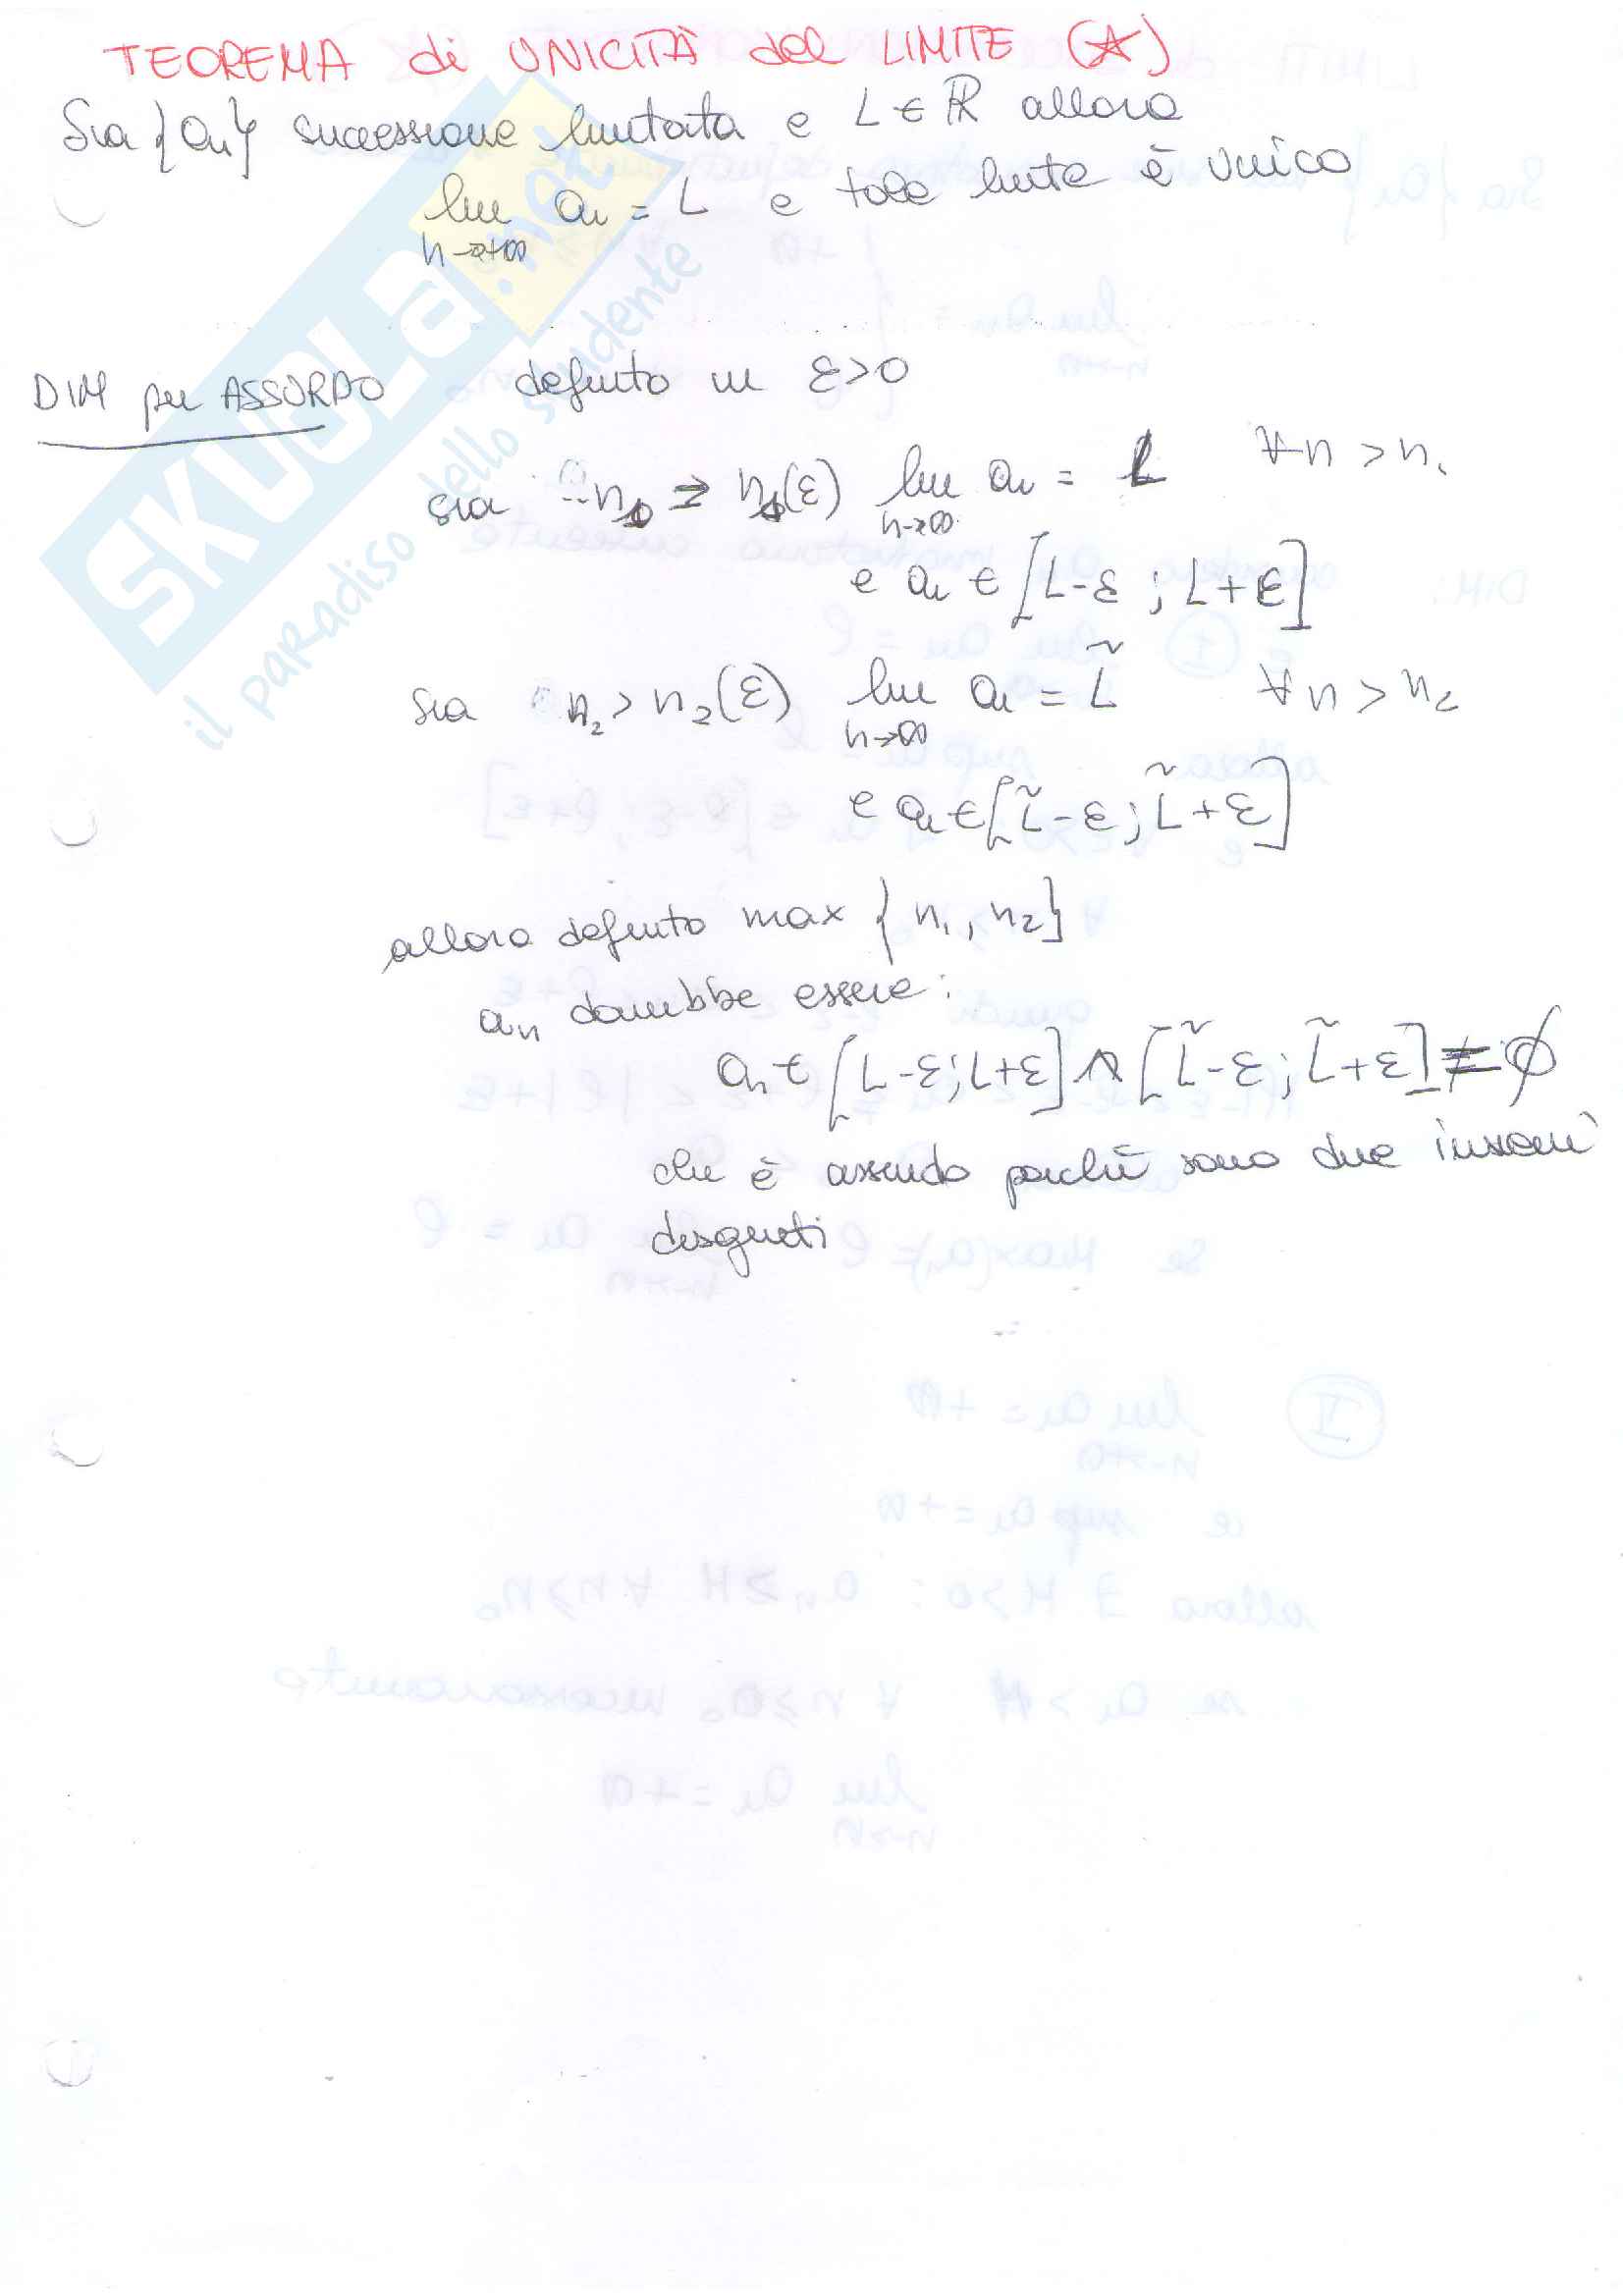 TEOREMA di UNICITÀ del LIMITE (☆)
Sia {an} successione limitata e L ∈ ℝ allora
lim an = L e tale limite è unico
n→+∞
DIM per ASSURDO definito un ε>0
sia n1 > n1(ε) lim an = L ∀n > n1
n→∞
e an ∈ [L-ε ; L+ε]
sia n2 > n2(ε) lim an = L̃ ∀n > n2
n→∞
e an ∈ [L̃-ε ; L̃+ε]
allora definito max {n1, n2}
an dovrebbe essere:
an ∈ [L-ε; L+ε] ∧ [L̃-ε; L̃+ε] ≠ ∅
che è assurdo perché sono due insiemi
disgiunti
SKUOLA.net
il paradiso dello studente